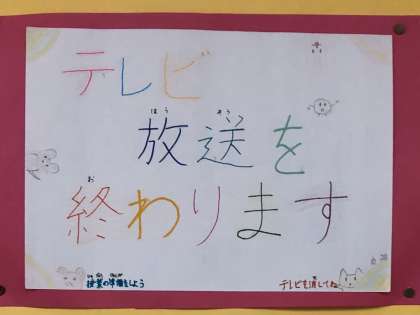 テレビ
放送を
終わります
授業の準備をしよう
テレビも消してね